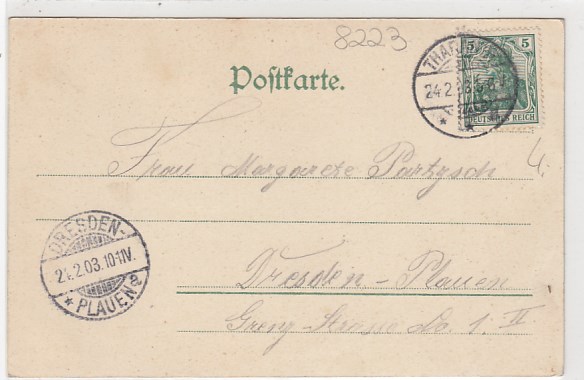 8223
Postkarte.
5 5
THAR
24 2 03
DEUTSCHES REICH
4.
Frau Margarete Partzsch
DRESDEN-
24.2.03.10-11V.
* PLAUEN a
Dresden-Plauen
Grenz-Strasse No. 1. II